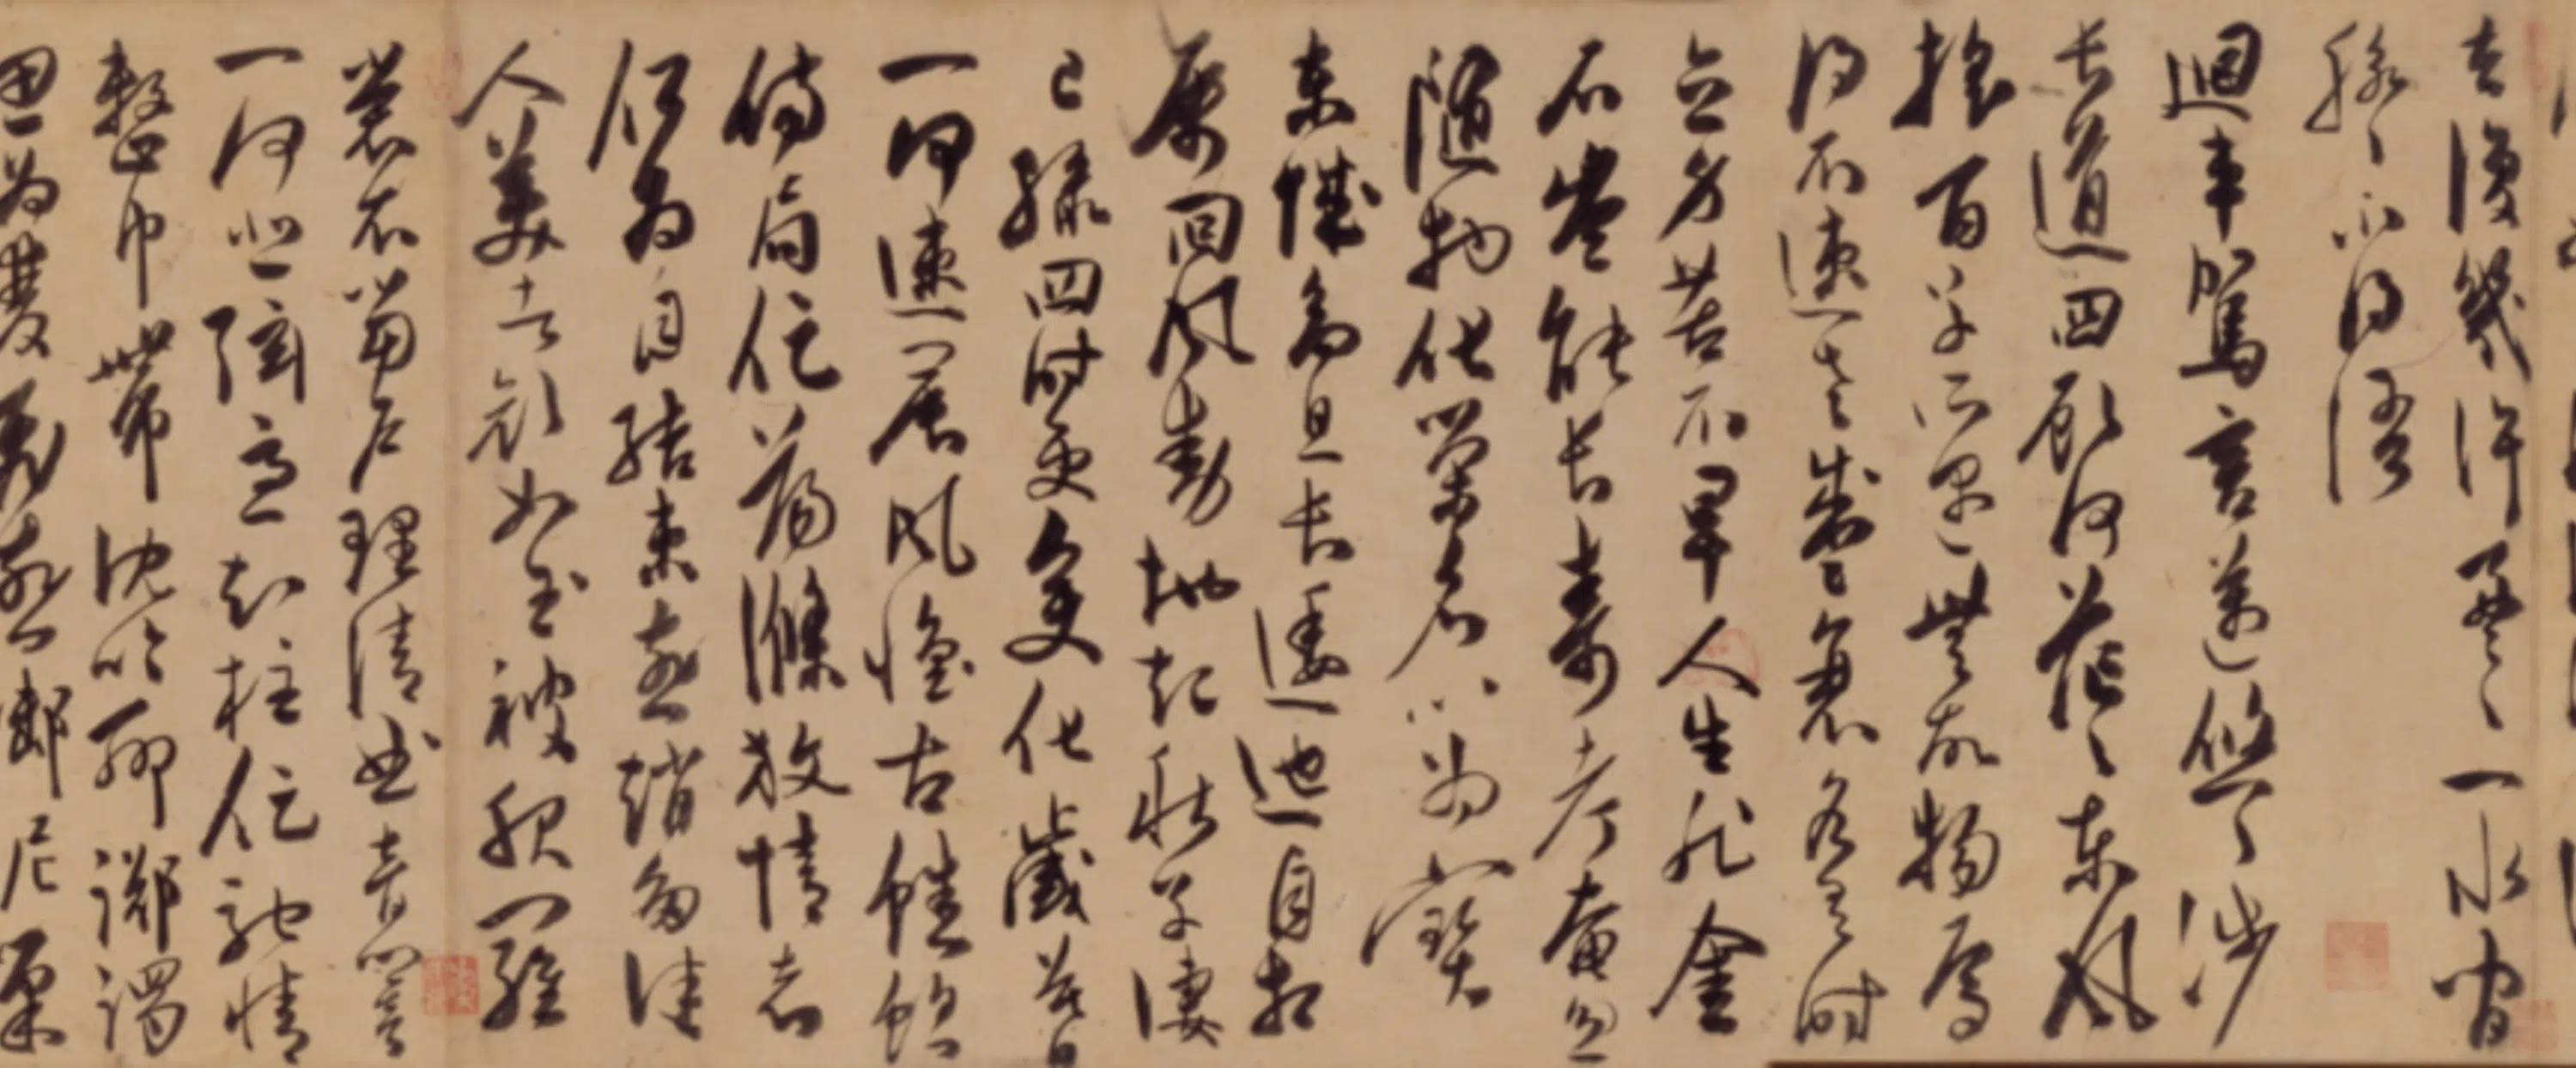 去復幾許盈〻一水間
脉〻不得語
迴車駕言邁悠〻涉
長道四顧何茫〻東風
搖百草所遇無故物焉
得不速老盛衰各有時
立身苦不早人生非金
石豈能長壽考奄忽
隨物化榮名以爲寶
東城高且長逶迤自相
屬回風動地起秋草萋
已綠四時更變化歲暮
一何速晨風懷苦心蟋蟀
傷局促蕩滌放情志
何爲自結束燕趙多佳
人美者顏如玉被服羅
裳衣當戶理清曲音響
一何悲弦急知柱促馳情
整巾帶沈吟聊躑躅
思爲雙飛燕銜泥巢